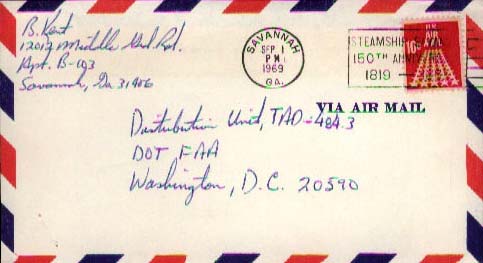 B. Kent
12012 Middle Grd. Rd.
Apt. B-103
Savannah, Ga 31406
SAVANNAH
SEP 1
PM
1969
GA.
STEAMSHIP
150TH ANNIV
1819
U.S.
AIR
MAIL
10c
VIA AIR MAIL
Distribution Unit, TAD-484.3
DOT, FAA
Washington, D.C. 20590